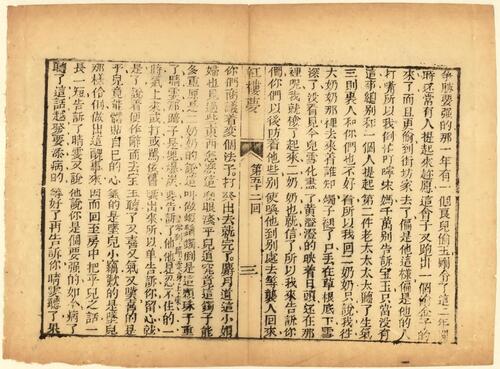 爭勝要強的那一年有一個良兒偷玉剛冷了這二年閒
時還常有人提起來趁愿這會子又跑出一個偷金子的
來了而且更偷到街坊家去了偏是他這樣偏是他的人
打嘴所以我倒忙叮嚀宋媽千萬別告訴寶玉只當沒有
這事總別和一個人提起第二件老太太太太聽了生氣
三則襲人和你們也不好看所以我回二奶奶只說我往
大奶奶那裡去來着誰知鐲子褪了口丟在草根底下雪
深了沒看見今兒雪化盡了黃澄澄的映着日頭還在那
裡呢我就揀了起來二奶奶也就信了所以我來告訴你
們你們以後防着他些別使喚他到別處去等襲人回來
紅樓夢 第五十二回 三
你們商議着變個法子打發出去就完了麝月道這小娼
婦也見過些東西怎麼這麼眼淺平兒道究竟這鐲子能
多重原是二奶奶的說這叫做蝦鬚鐲倒是這顆珠子重
了晴雯那蹄子是塊爆炭要告訴了他他是忍不住的一
時氣上來或打或罵依舊嚷出來所以單告訴你留心就
是了說着便作辭而去寶玉聽了又喜又氣又嘆喜的是
平兒竟能體貼自己的心氣的是墜兒小竊歎的是墜兒
那樣伶俐做出這醜事來因而回至房中把平兒之話一
長一短告訴了晴雯又說他說你是個要強的如今病了
聽了這話越發要添病的等好了再告訴你晴雯聽了果